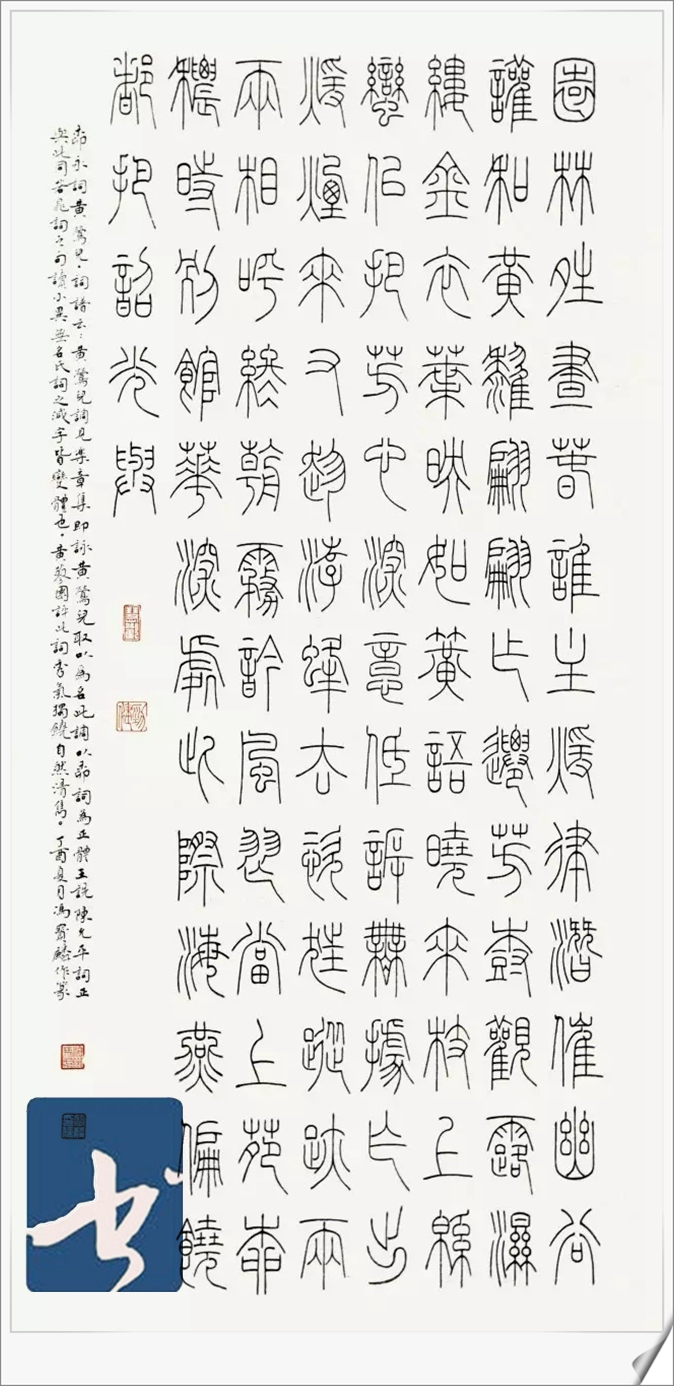 園林晴晝春誰主煖律潛催幽谷
讙和黃鸝翩翩乍遷芳樹觀露濕
縷金衣葉映如簧語曉來枝上緜
蠻佀把芳心深意低訴無據乍出
煖煙來又趁游蜂去恣狂蹤跡兩
兩相呼終朝霧吟風舞當上苑柳
穠時別館華深處此際海燕偏饒
都把韶光與
柳永詞黃鶯兒，詞譜云：黃鶯兒調見樂章集即詠黃鶯兒取以為名此調以柳詞為正體王詵陳允平詞正
與此同若晁詞之句讀小異無名氏詞之減字皆變體也。黃蓼園評此詞秀氣獨饒自然清雋。丁酉夏月馮寶麟作篆
书